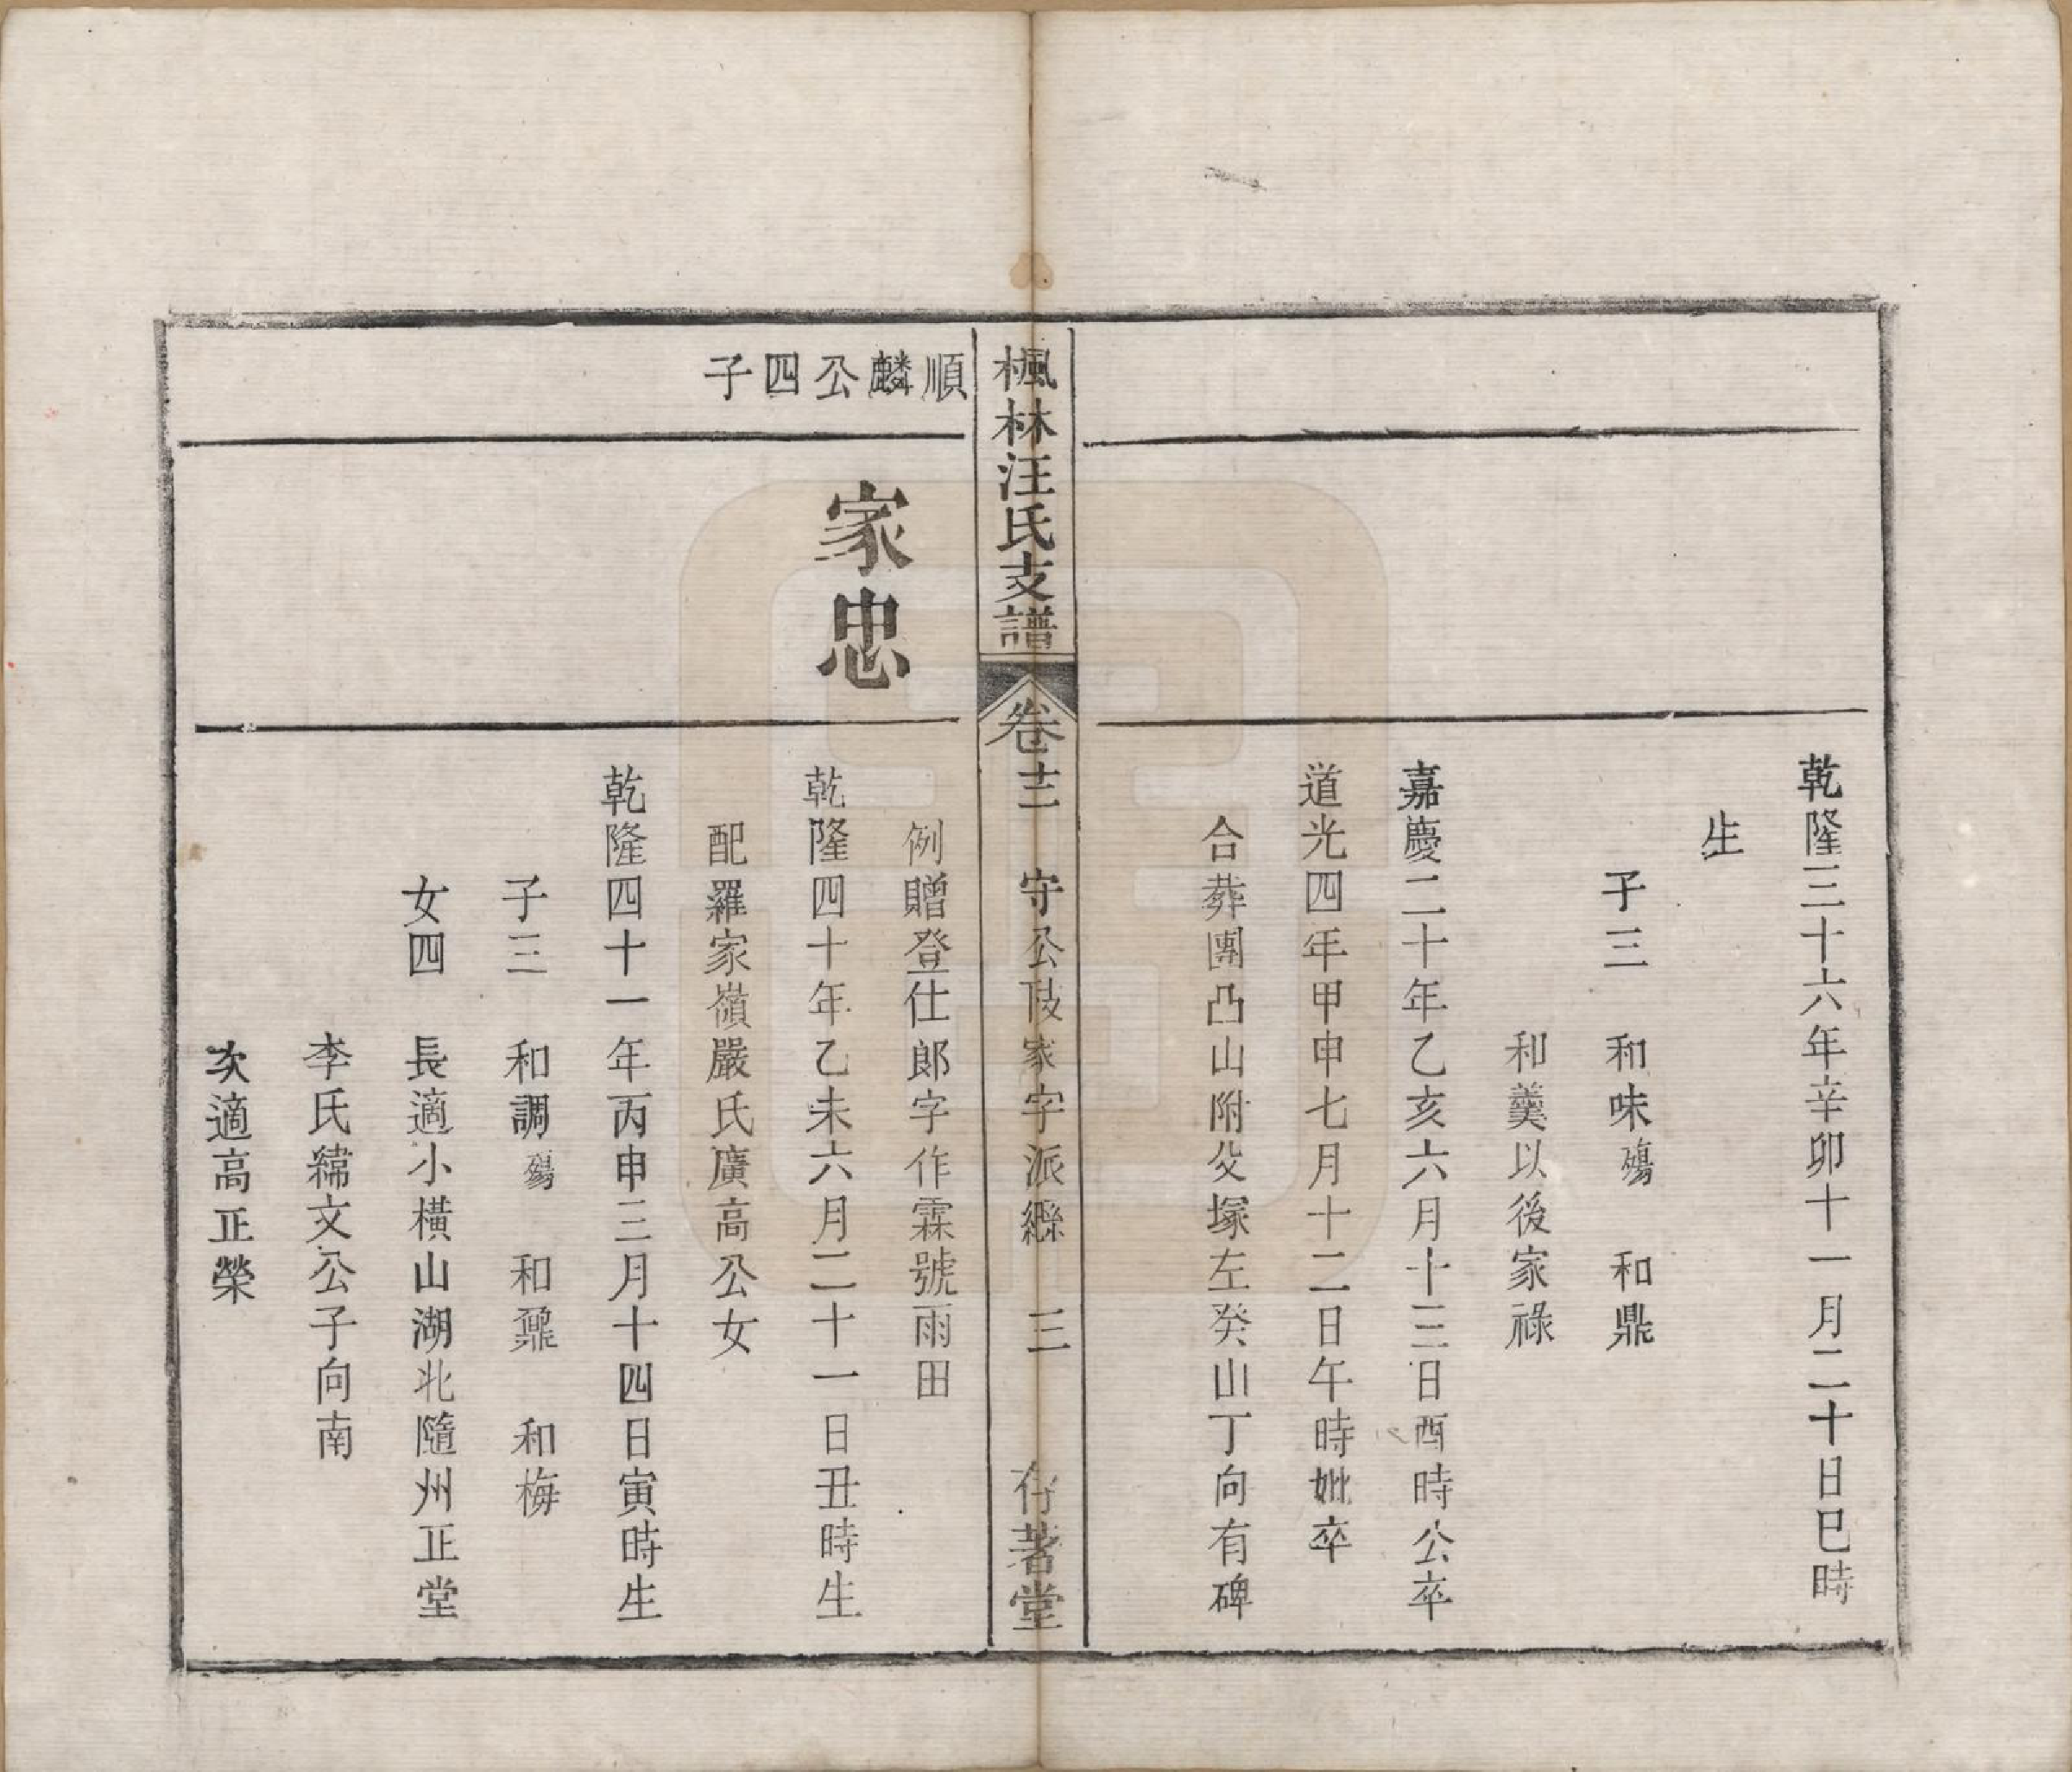 乾隆三十六年辛卯十一月二十日巳時
生
子三　和味殤　和鼎
和羹以後家祿
嘉慶二十年乙亥六月十三日酉時公卒
道光四年甲申七月十二日午時妣卒
合葬團凸山附父塚左癸山丁向有碑
楓林汪氏支譜　卷十二　守公股家字派繇　三　存著堂
順麟公四子
家忠
例贈登仕郎字作霖號雨田
乾隆四十年乙未六月二十一日丑時生
配羅家嶺嚴氏廣高公女
乾隆四十一年丙申三月十四日寅時生
子三　和調殤　和鼐　和梅
女四　長適小橫山湖北隨州正堂
李氏緯文公子向南
次適高正榮